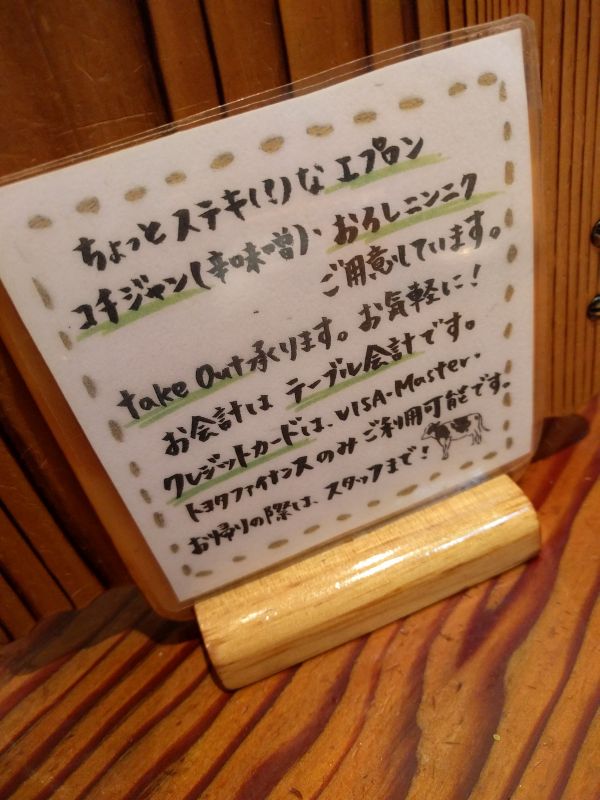 ちょっとステキ(!)な エプロン
コチジャン(辛味噌)、おろしニンニク
ご用意しています。
take Out 承ります。お気軽に!
お会計は テーブル会計です。
クレジットカードは、VISA・Master・
トヨタファイナンスのみ ご利用可能です。
お帰りの際は、スタッフまで!